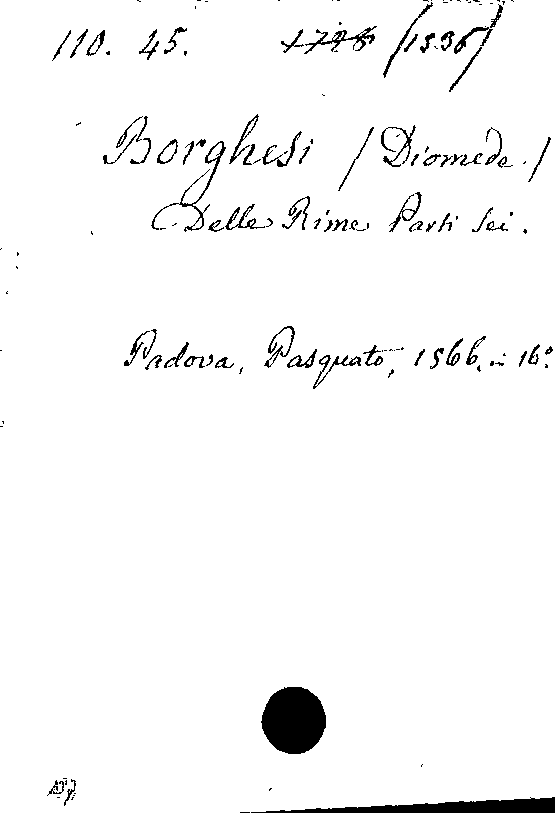 110. 45. 1728 (1536)
Borghesi / Diomede. /
Delle Rime Parti Sei.
Padova, Pasquato, 1566. in 16º.